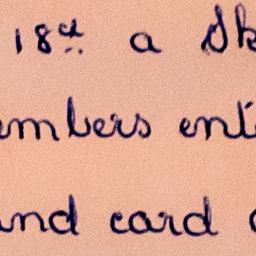 18th a Sk
embers ent
and card